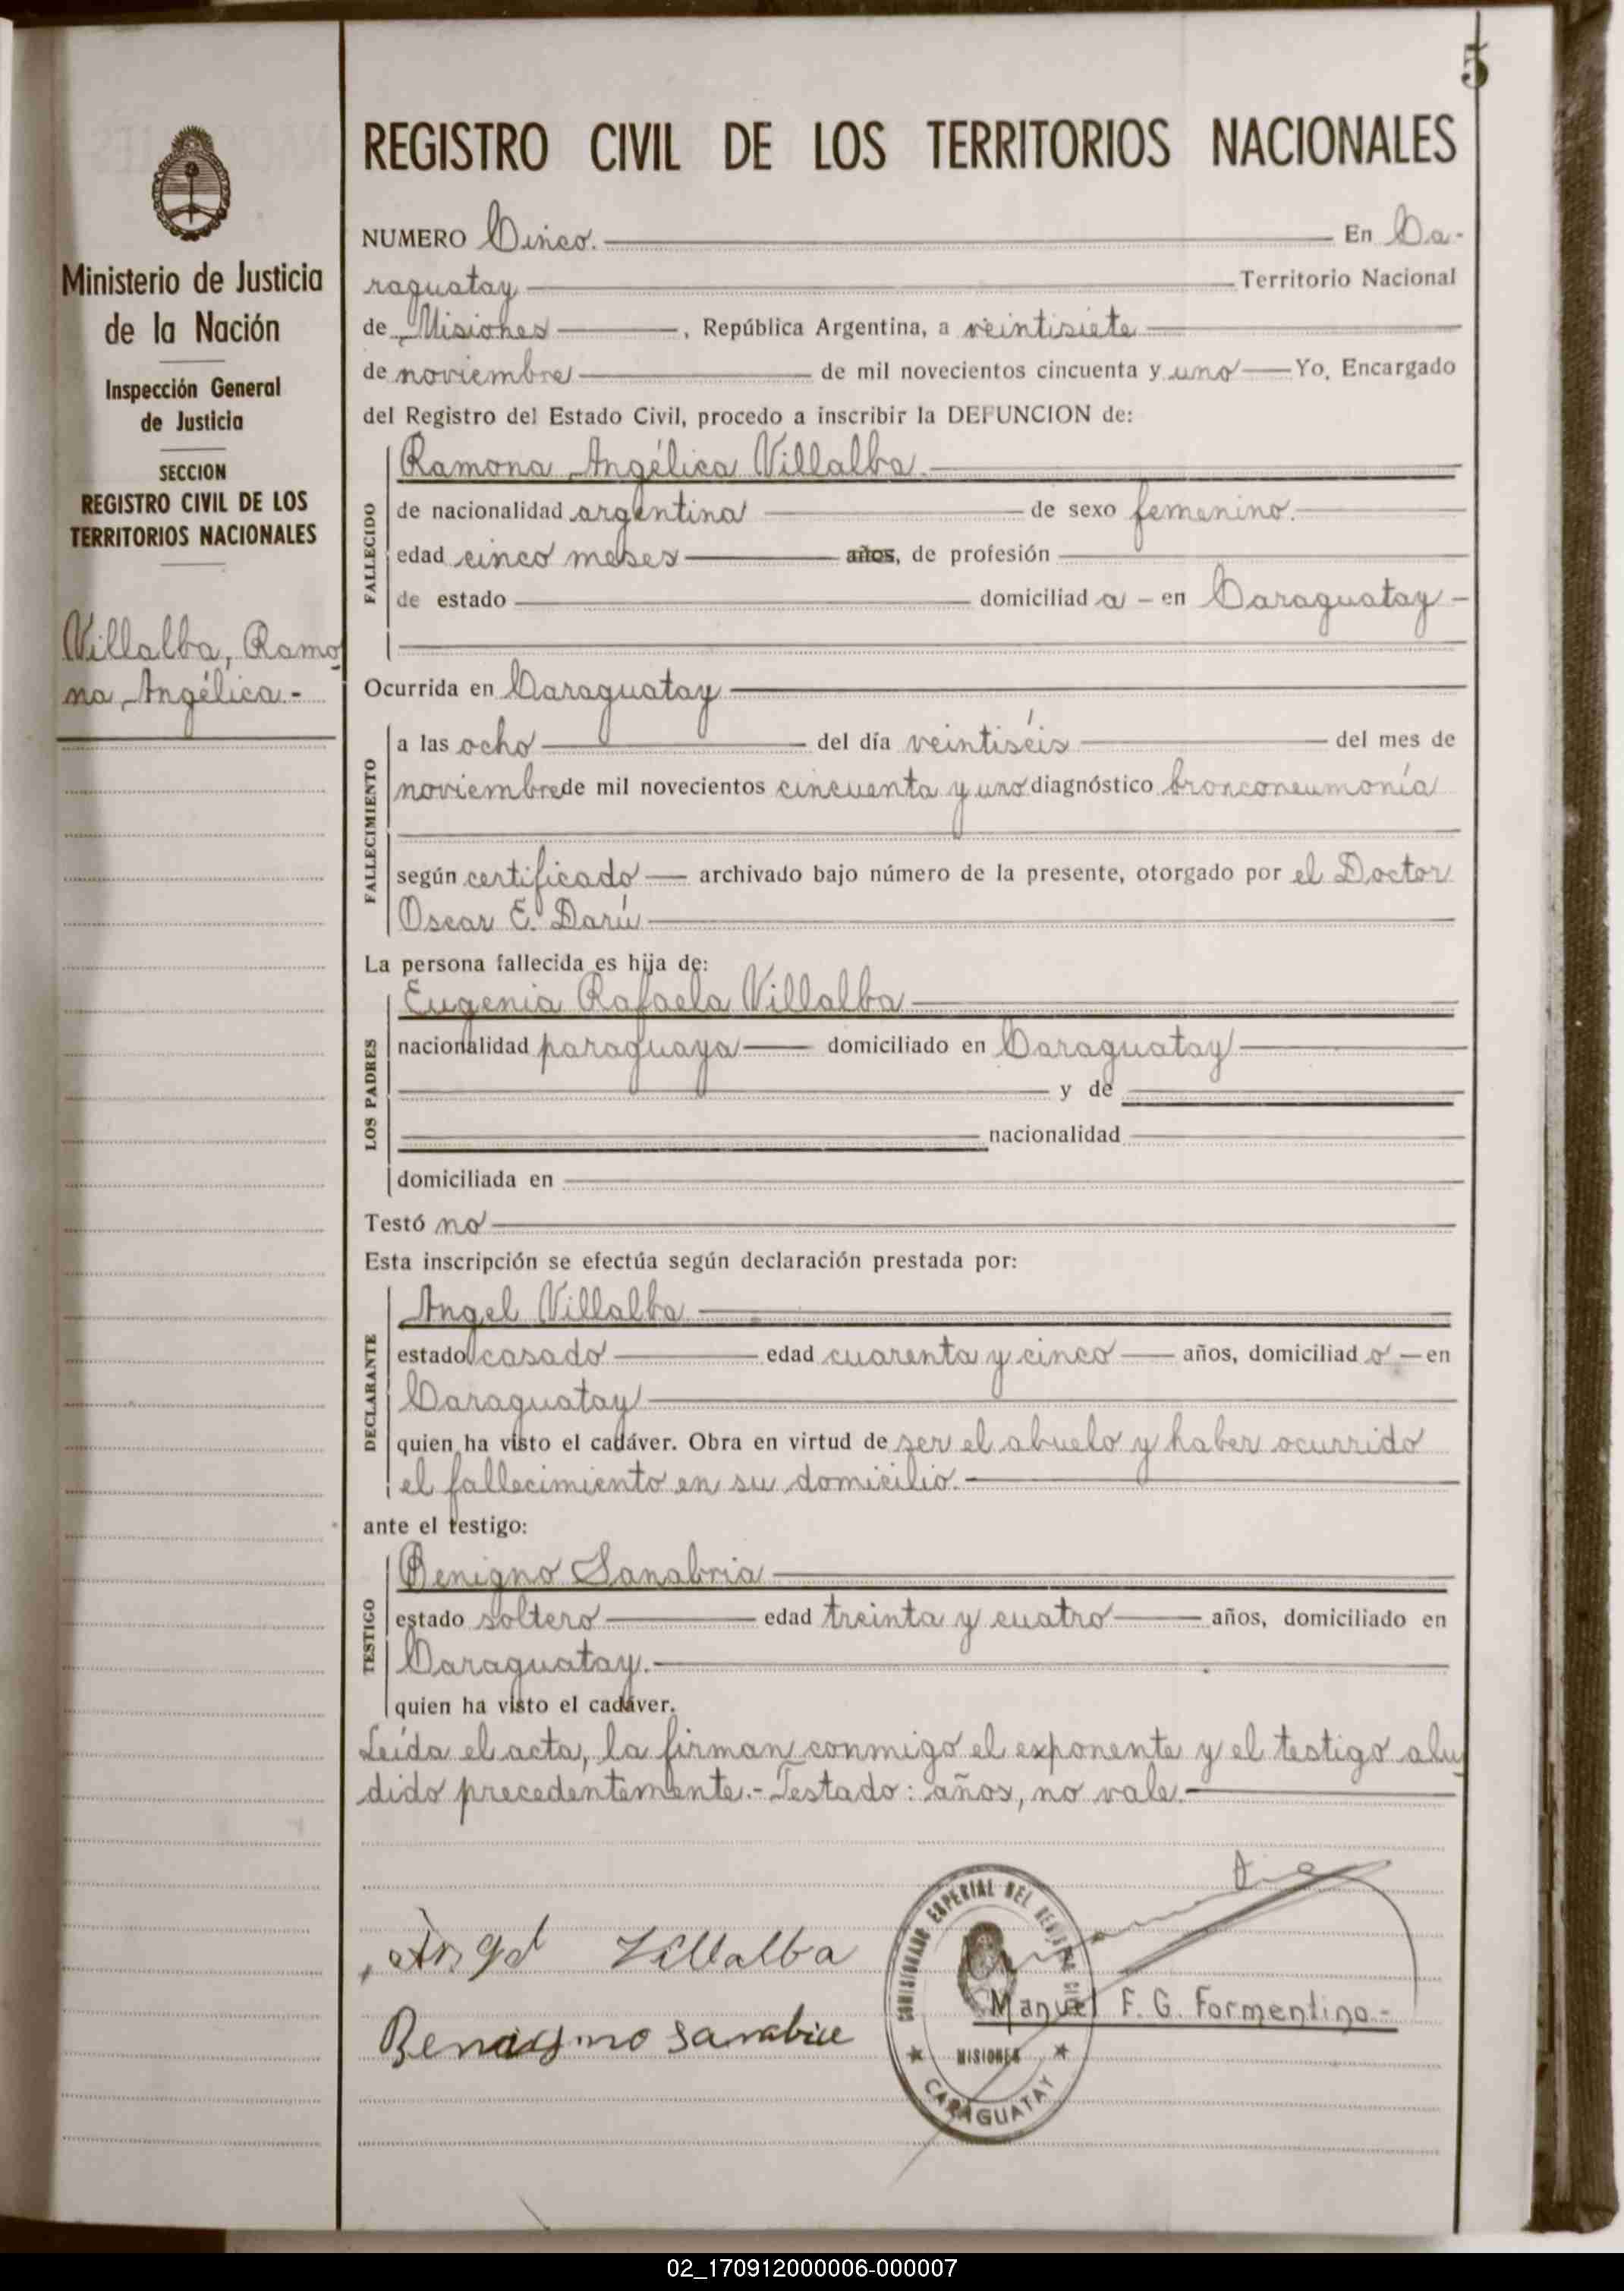 5
REGISTRO CIVIL DE LOS TERRITORIOS NACIONALES
Ministerio de Justicia
de la Nación
Inspección General
de Justicia
SECCION
REGISTRO CIVIL DE LOS
TERRITORIOS NACIONALES
Villalba, Ramo
na Angélica.-
NUMERO Cinco. En Ca-
raguatay Territorio Nacional
de Misiones , República Argentina, a veintisiete
de noviembre de mil novecientos cincuenta y uno Yo, Encargado
del Registro del Estado Civil, procedo a inscribir la DEFUNCION de:
FALLECIDO
Ramona Angélica Villalba.
de nacionalidad argentina de sexo femenino.
edad cinco meses años, de profesión
de estado domiciliad a - en Caraguatay -
Ocurrida en Caraguatay
FALLECIMIENTO
a las ocho del día veintiséis del mes de
noviembre de mil novecientos cincuenta y uno diagnóstico bronconeumonía
según certificado archivado bajo número de la presente, otorgado por el Doctor
Oscar E. Darú
La persona fallecida es hija de:
LOS PADRES
Eugenia Rafaela Villalba
nacionalidad paraguaya domiciliado en Caraguatay
y de
nacionalidad
domiciliada en
Testó no
Esta inscripción se efectúa según declaración prestada por:
DECLARANTE
Angel Villalba
estado casado edad cuarenta y cinco años, domiciliad o - en
Caraguatay
quien ha visto el cadáver. Obra en virtud de ser el abuelo y haber ocurrido
el fallecimiento en su domicilio.-
ante el testigo:
TESTIGO
Benigno Sanabria
estado soltero edad treinta y cuatro años, domiciliado en
Caraguatay.-
quien ha visto el cadáver.
Leída el acta, la firman conmigo el exponente y el testigo alu
dido precedentemente.- Testado: años, no vale.-
Angel Villalba
Manuel F. G. Formentino.-
MISIONES
CARAGUATAY
02_170912000006-000007